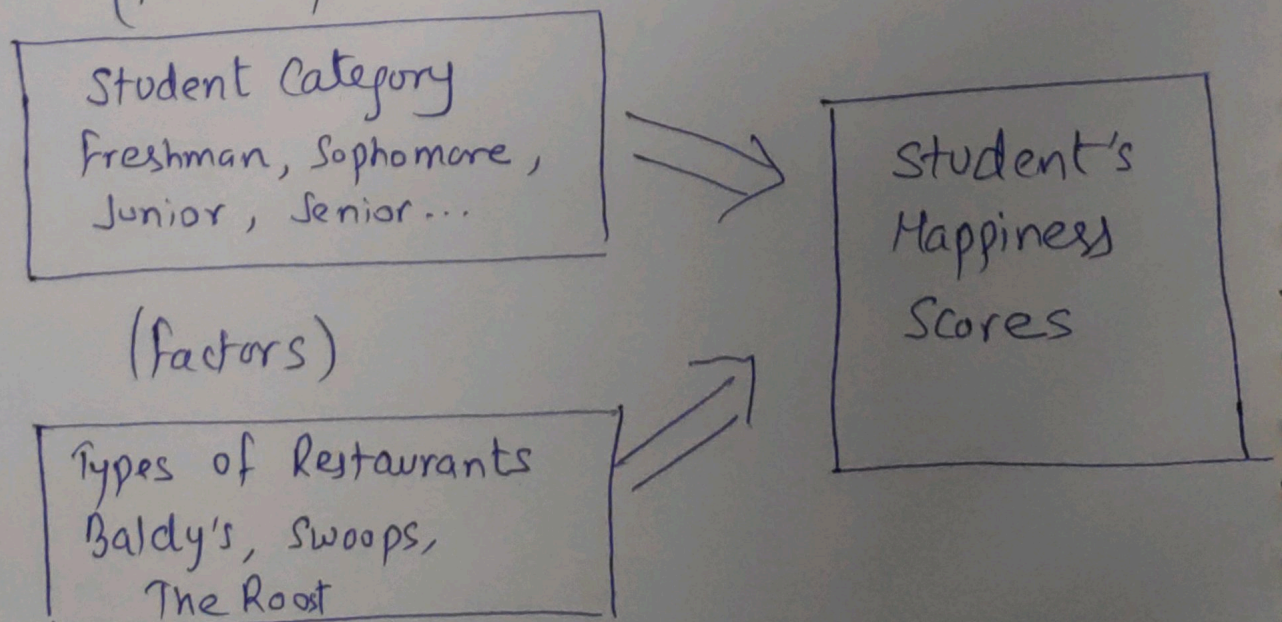 Student Category
Freshman, Sophomore,
Junior, Senior...
(factors)
Types of Restaurants
Baldy's, Swoops,
The Roost
Student's
Happiness
Scores